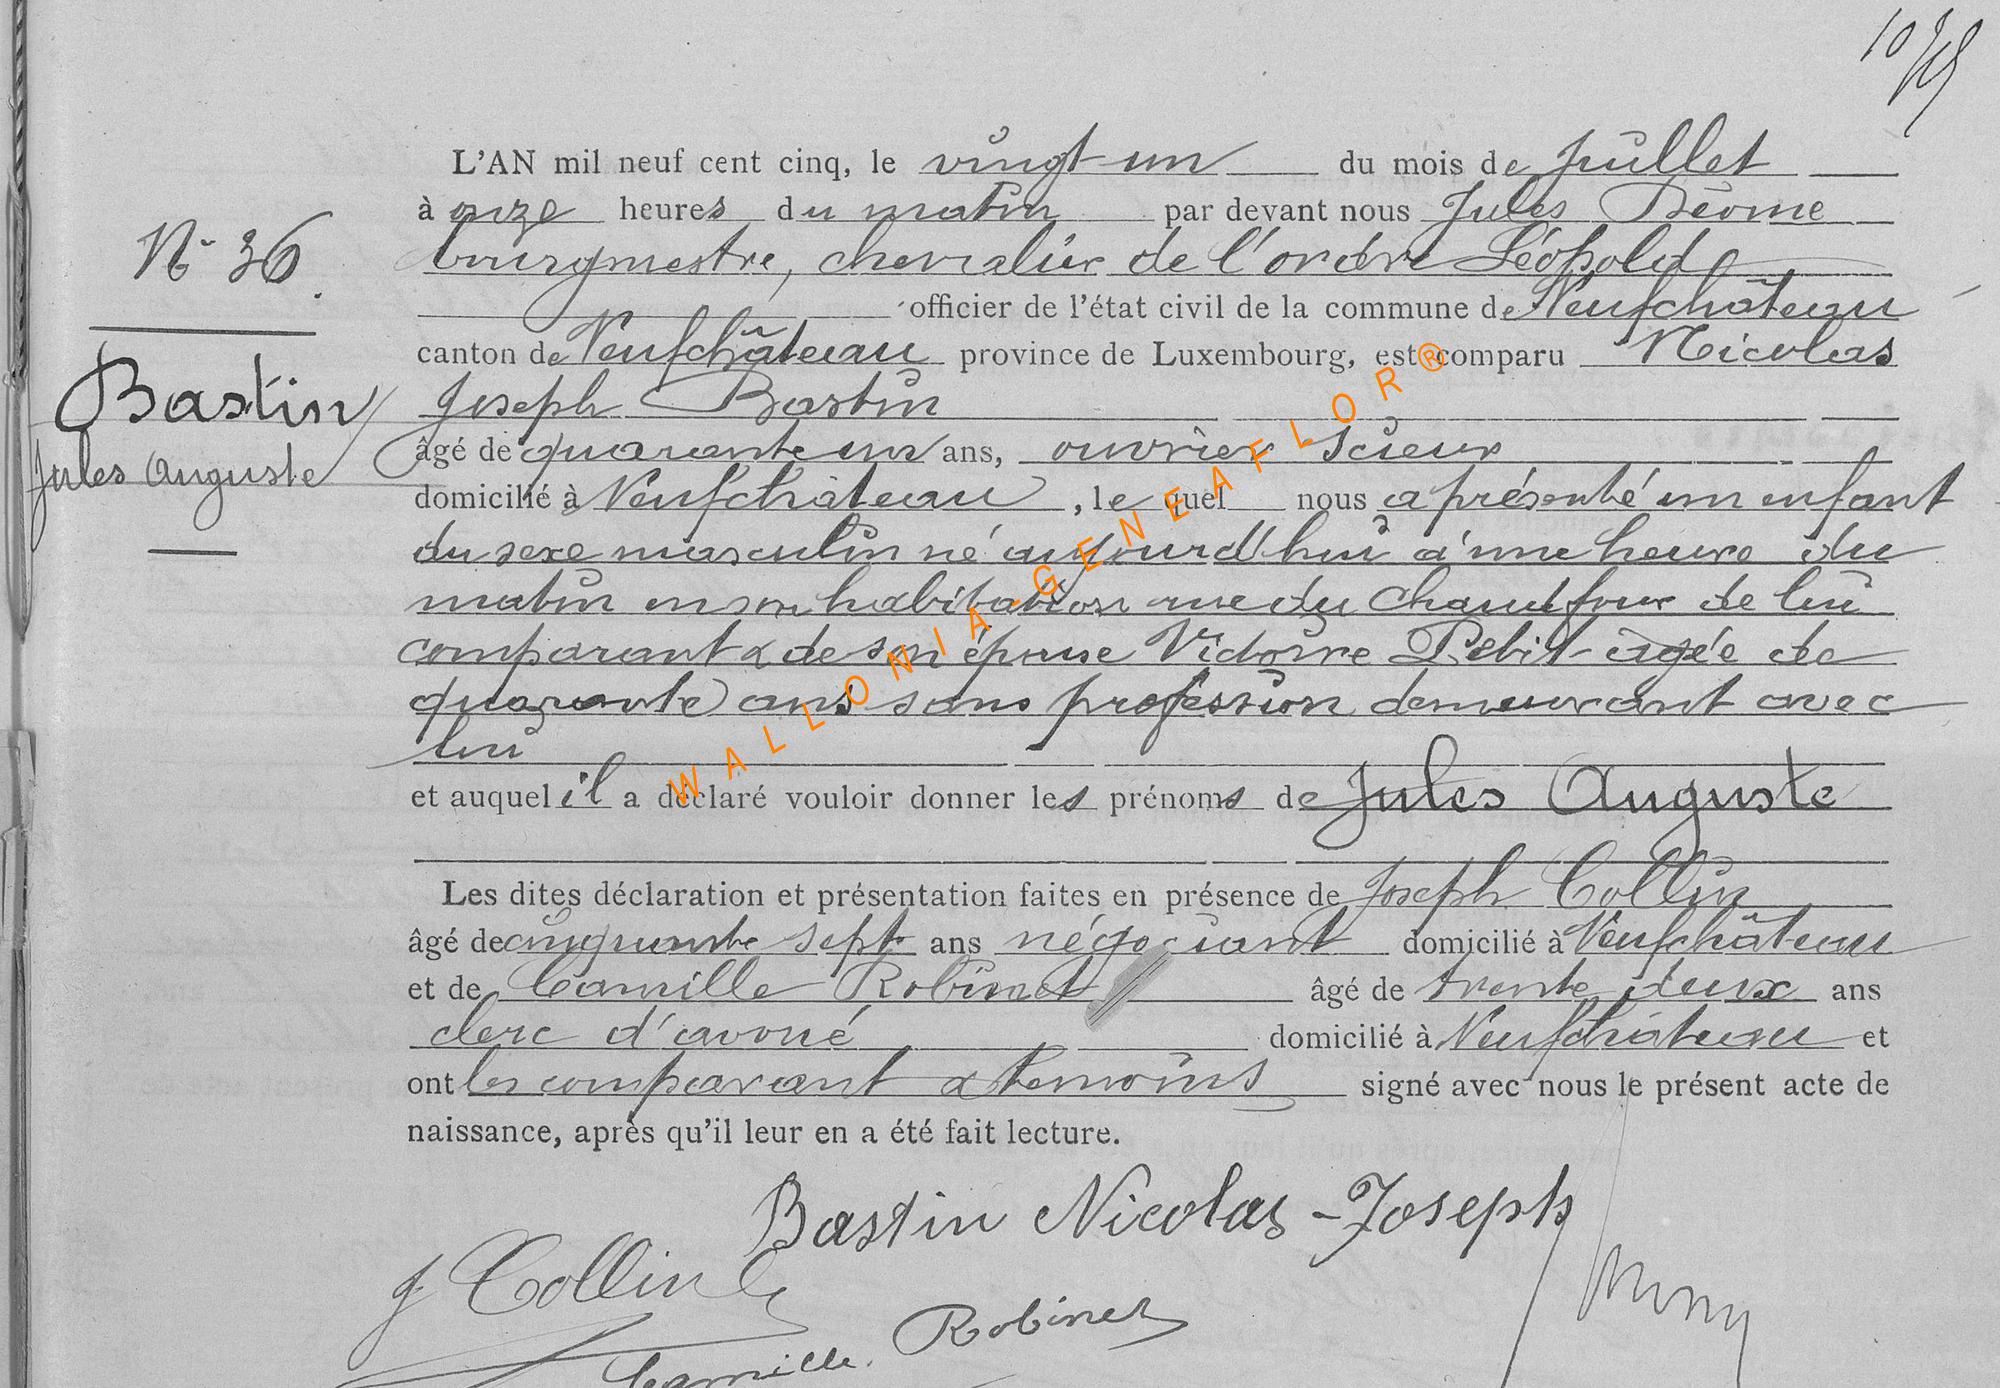 L'AN mil neuf cent cinq, le vingt-un du mois de Juillet
à onze heures du matin par devant nous Jules Déome
N° 36.
bourgmestre, chevalier de l'ordre Léopold
officier de l'état civil de la commune de Neufchâteau
canton de Neufchâteau province de Luxembourg, est comparu Nicolas
Bastin
Joseph Bastin
Jules Auguste
âgé de quarante un ans, ouvrier scieur
domicilié à Neufchâteau, le quel nous a présenté un enfant
du sexe masculin né aujourd'hui à une heure du
matin en son habitation rue du Chaudfour de lui
comparant & de son épouse Victoire Petit agée de
quarante ans sans profession demeurant avec
lui
et auquel il a déclaré vouloir donner les prénoms de Jules Auguste
Les dites déclaration et présentation faites en présence de Joseph Collin
âgé de cinquante sept ans négociant domicilié à Neufchâteau
et de Camille Robinet âgé de trente deux ans
clerc d'avoué domicilié à Neufchâteau et
ont les comparant & temoins signé avec nous le présent acte de
naissance, après qu'il leur en a été fait lecture.
Bastin Nicolas-Joseph
J Collin
Camille Robinet
WALLONIA-GENEAFLOR®